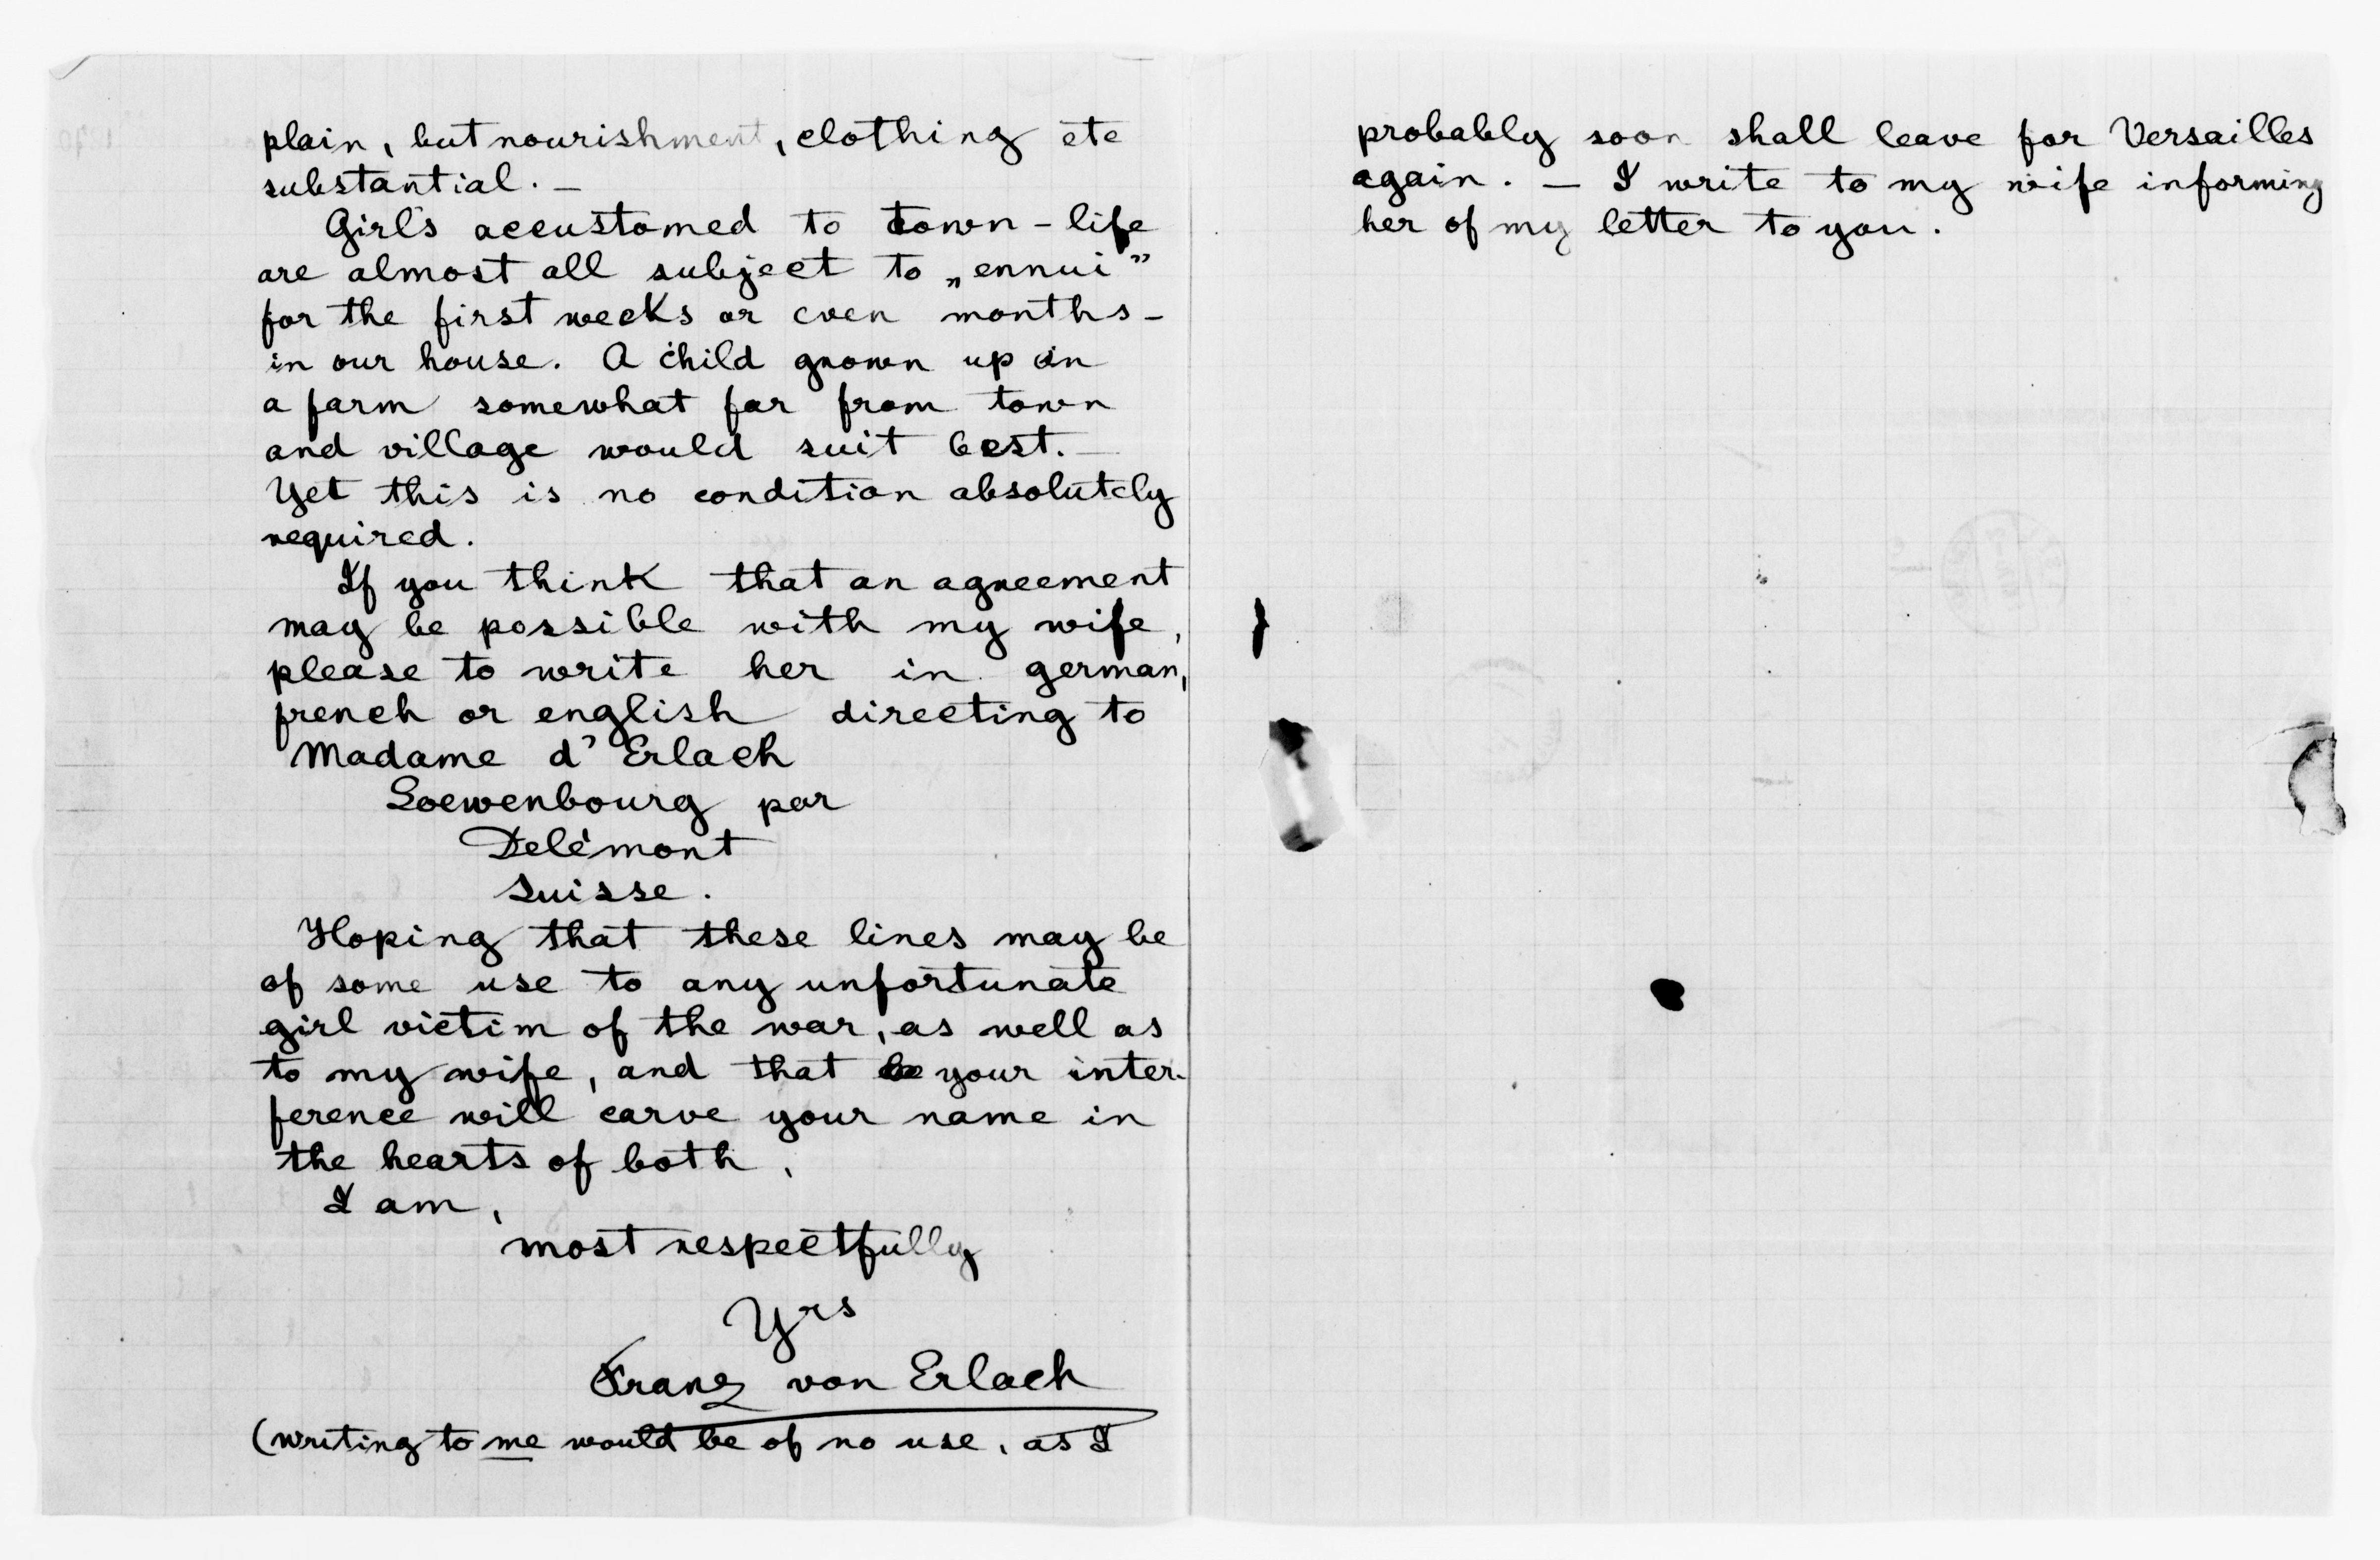 plain, but nourishment, clothing etc
substantial. —
Girls accustomed to town-life
are almost all subject to „ennui”
for the first weeks or even months-
in our house. A child grown up in
a farm somewhat far from town
and village would suit best. —
Yet this is no condition absolutely
required.
If you think that an agreement
may be possible with my wife,
please to write her in german,
french or english directing to
Madame d'Erlach
Loewenbourg par
Delémont
Suisse.
Hoping that these lines may be
of some use to any unfortunate
girl victim of the war, as well as
to my wife, and that your inter-
ference will carve your name in
the hearts of both,
I am,
most respectfully
Yrs
Franz von Erlach
(writing to me would be of no use, as I
probably soon shall leave for Versailles
again. — I write to my wife informing
her of my letter to you.